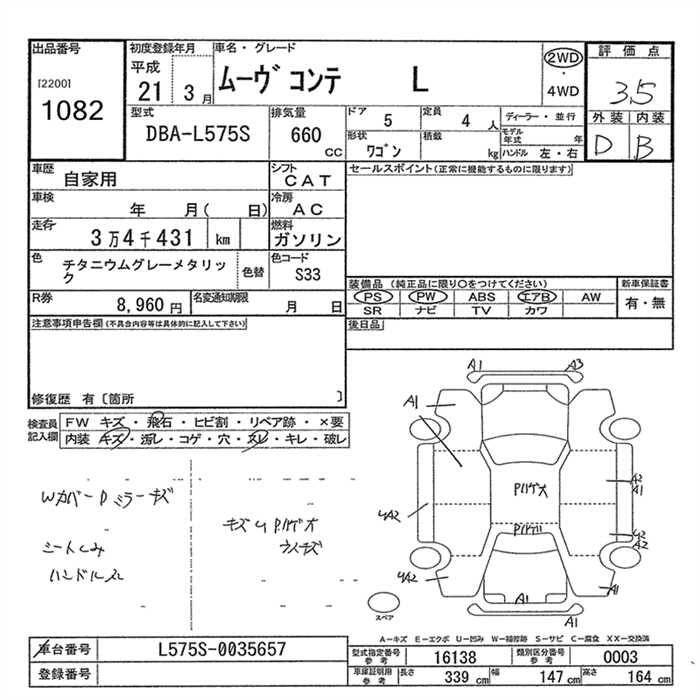 出品番号
[2200]
1082
初度登録年月
平成
21 3月
車名・グレード
ムーヴ コンテ L
2WD
・
4WD
評価点
3.5
外装 内装
D B
型式
DBA-L575S
排気量
660
CC
ドア
5
定員
4人
形状
ワゴン
積載
kg
ディーラー・並行
モデル年式 年
ハンドル 左・右
車歴
自家用
シフト
CAT
車検
年 月( 日)
冷房
AC
走行
3万4千431 km
燃料
ガソリン
色
チタニウムグレーメタリック
色替
色コード
S33
R券
8,960 円
名変通知期限
月 日
セールスポイント(正常に機能するものに限ります)
装備品 (純正品に限り〇をつけてください)
PS PW ABS エアB AW
SR ナビ TV カワ
新車保証書
有・無
後日品
注意事項申告欄(不具合内容等は具体的に記入して下さい)
修復歴 有〔箇所 〕
検査員記入欄
FW キズ・飛石・ヒビ割・リペア跡・×要
内装 キズ・汚レ・コゲ・穴・スレ・キレ・破レ
キズ
シート
ハンドル
A1 A3
A1
A2
A1
A2
A1
A1
A1
スペア
A-キズ E-エクボ U-凹み W-補修跡 S-サビ C-腐食 XX-交換済
車台番号
L575S-0035657
登録番号
型式指定番号 参考
16138
類別区分番号 参考
0003
車庫証明用 参考
長さ 339 cm
幅 147 cm
高さ 164 cm